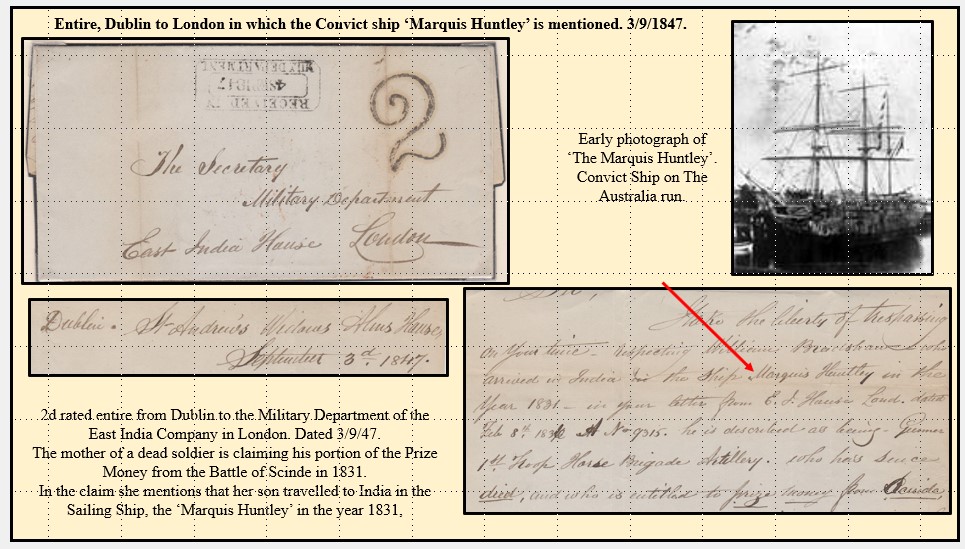 Entire, Dublin to London in which the Convict ship ‘Marquis Huntley’ is mentioned. 3/9/1847.
RECEIVED IN
4SEP1847
MILY DEPARTMENT
2
The Secretary
Military Department
East India House London
Early photograph of
‘The Marquis Huntley’.
Convict Ship on The
Australia run.
Dublin. St Andrew's Widows Alms House,
September 3d. 1847.
I take the liberty of trespassing
on your time - respecting William Bradshaw who
arrived in India in the Ship Marquis Huntley in the
Year 1831. - in your letter from E. I. House Lond. dated
Feb 8th. No 9315. he is described as being - Gunner
1st Troop Horse Brigade Artillery. who has since
died, and who is entitled to prize money from
2d rated entire from Dublin to the Military Department of the
East India Company in London. Dated 3/9/47.
The mother of a dead soldier is claiming his portion of the Prize
Money from the Battle of Scinde in 1831
In the claim she mentions that her son travelled to India in the
Sailing Ship, the ‘Marquis Huntley’ in the year 1831,